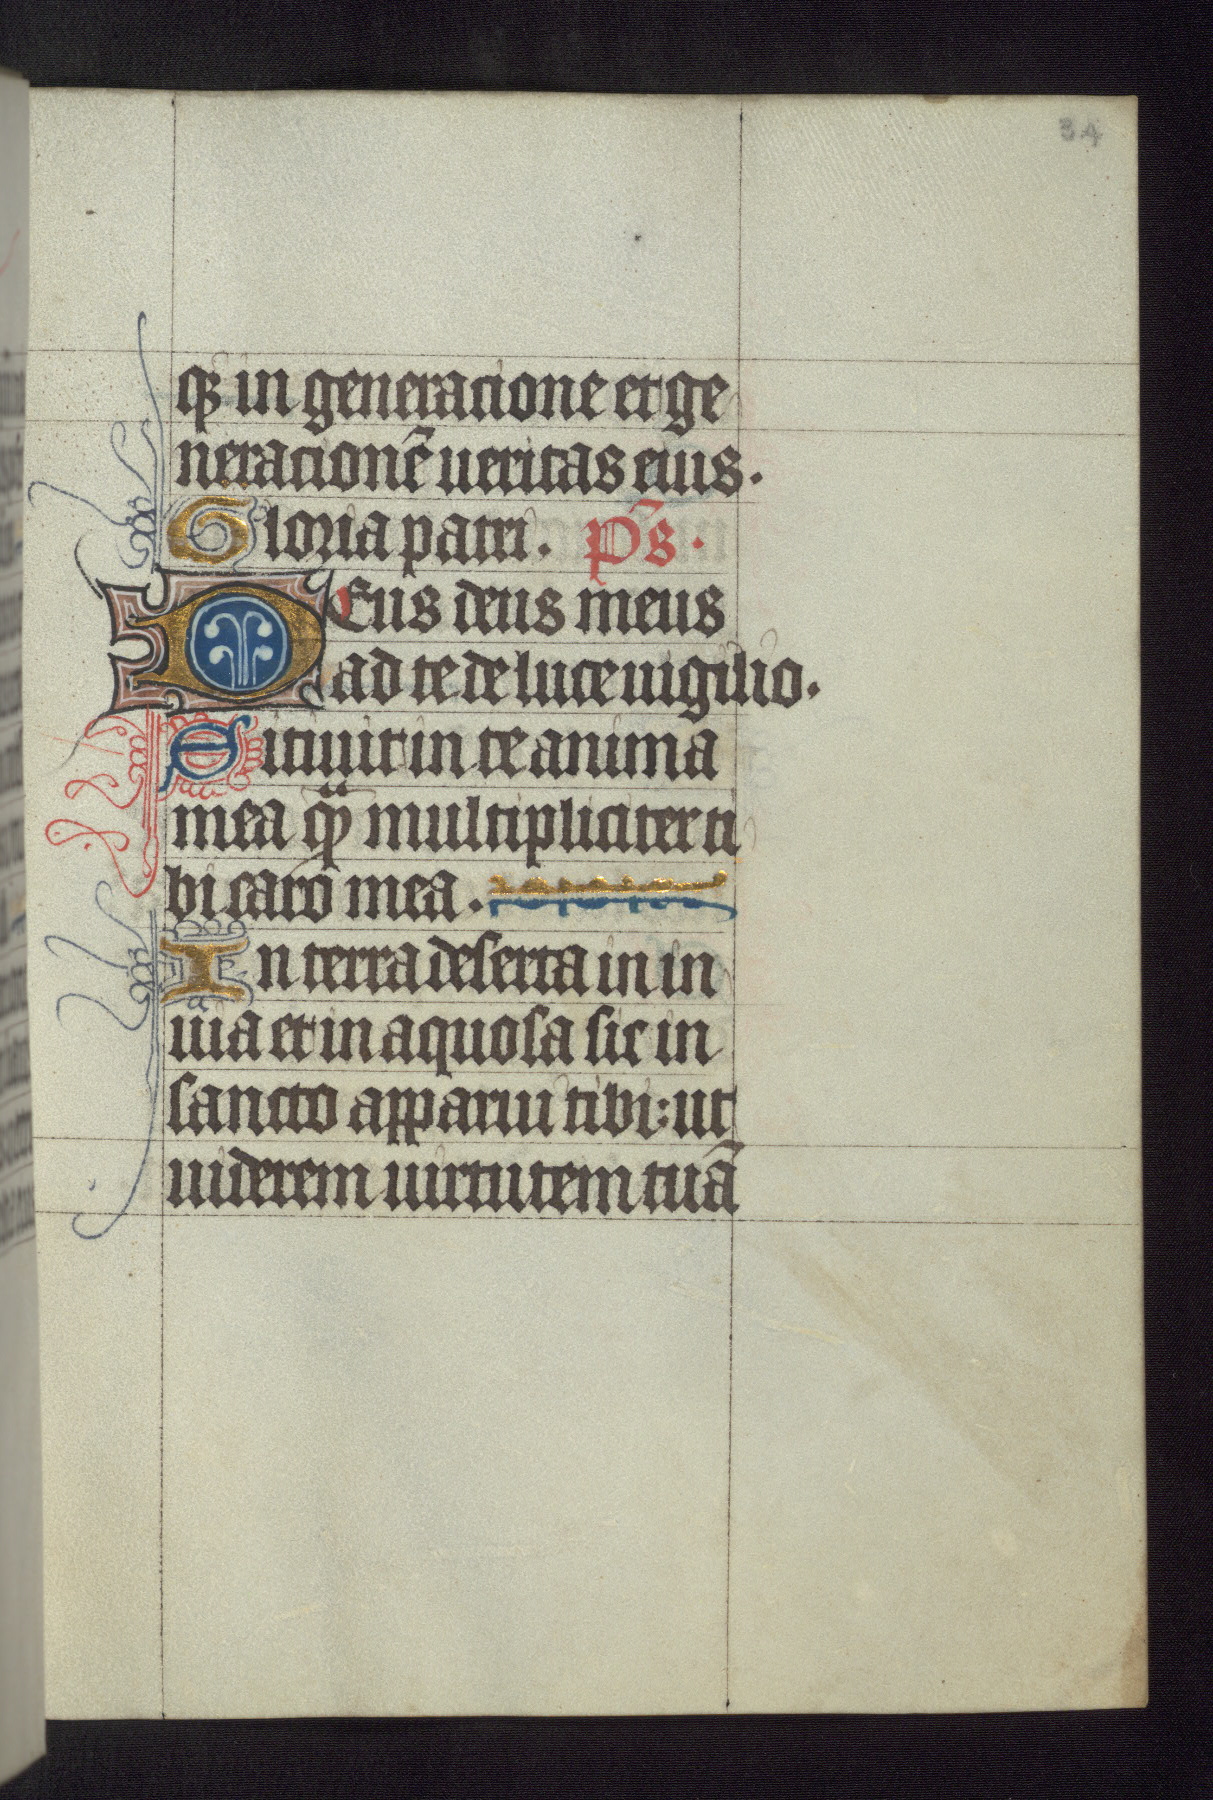 34
qꝫ in generacione et ge
neracionē ueritas eius.
Gloria patri. p̄s.
DEus deus meus
ad te de luce uigilio.
Sitiuit in te anima
mea qᷓ multipliciter ti
bi caro mea.
In terra deserta in in
uia et in aquosa sic in
sancto apparui tibi: ut
uiderem uirtutem tuā